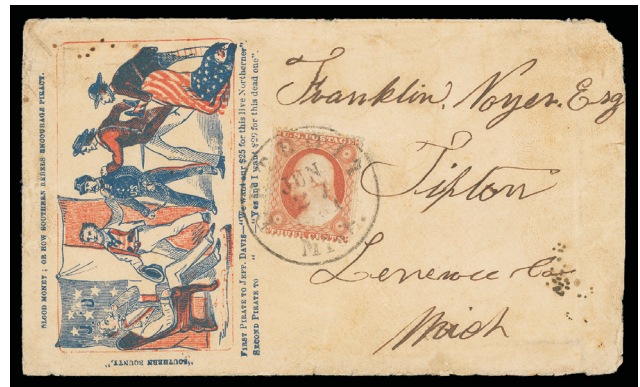 BLOOD MONEY; OR HOW SOUTHERN REBELS ENCOURAGE PIRACY.
"SOUTHERN BOUNTY."
FIRST PIRATE TO JEFF. DAVIS—"We want our $25 for this live Northerner".
SECOND PIRATE TO " "Yes and I want $20 for this dead one".
JUN
Franklin Noyer. Esq
Tipton
Lenewee Co
Mich